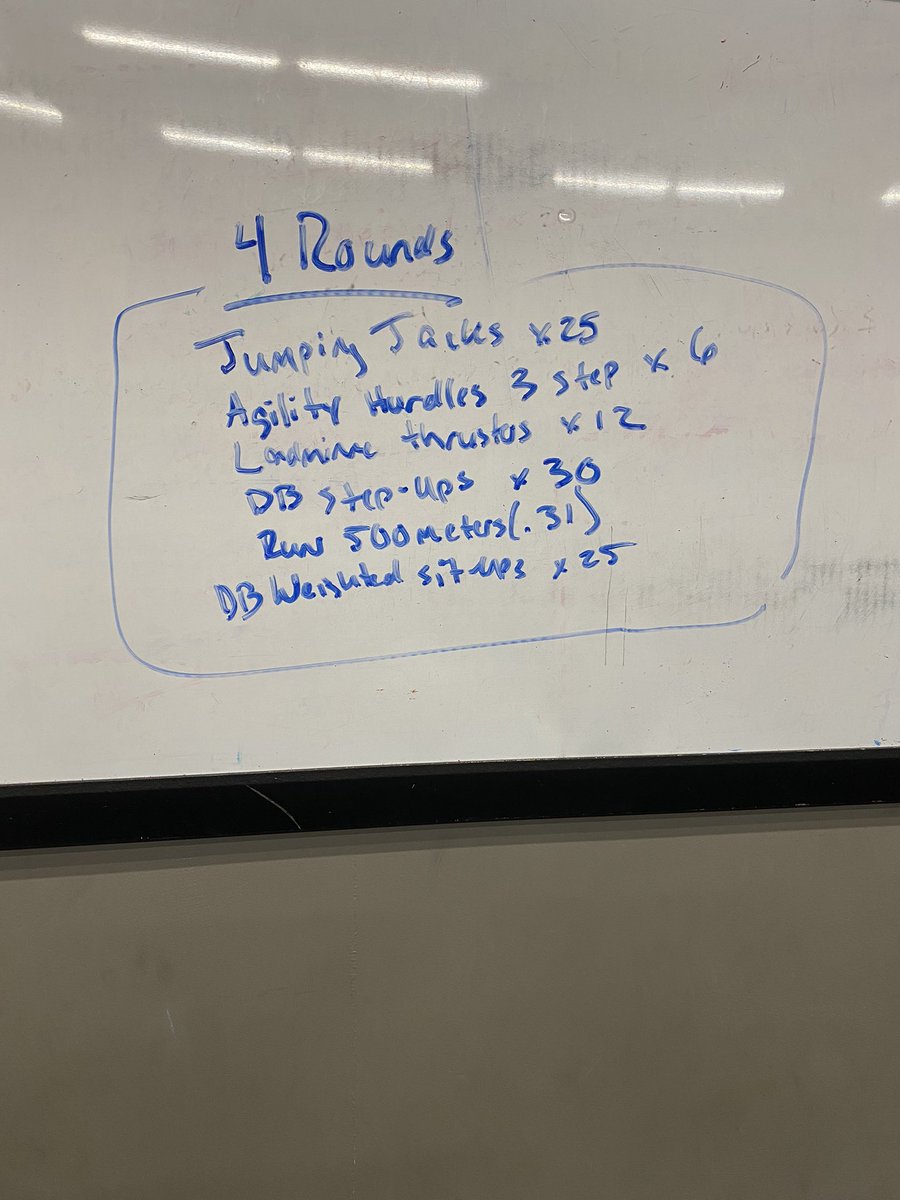 4 Rounds
Jumping Jacks x 25
Agility Hurdles 3 step x 6
Ladmine thrusters x 12
DB step-ups x 30
Run 500 meters (.31)
DB Weighted sit-ups x 25